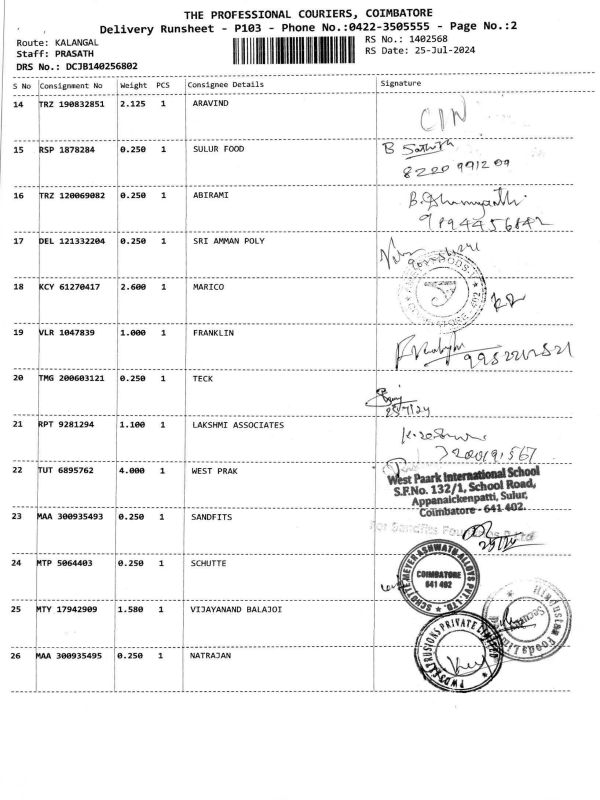 THE PROFESSIONAL COURIERS, COIMBATORE
Delivery Runsheet - P103 - Phone No.:0422-3505555 - Page No.:2
Route: KALANGAL
Staff: PRASATH
DRS No.: DCJB140256802
RS No.: 1402568
RS Date: 25-Jul-2024
S No Consignment No Weight PCS Consignee Details Signature
14 TRZ 190832851 2.125 1 ARAVIND
CIN
15 RSP 1878284 0.250 1 SULUR FOOD
B Sathish
8220991209
16 TRZ 120069082 0.250 1 ABIRAMI
9894456842
17 DEL 121332204 0.250 1 SRI AMMAN POLY
18 KCY 61270417 2.600 1 MARICO
19 VLR 1047839 1.000 1 FRANKLIN
20 TMG 200603121 0.250 1 TECK
25/7/24
21 RPT 9281294 1.100 1 LAKSHMI ASSOCIATES
22 TUT 6895762 4.000 1 WEST PRAK
West Paark International School
S.F.No. 132/1, School Road,
Appanaickenpatti, Sulur,
Coimbatore - 641 402.
23 MAA 300935493 0.250 1 SANDFITS
For Sandfits
24 MTP 5064403 0.250 1 SCHUTTE
SCHUTTE MEYER ASHWATH ALLOYS PVT. LTD.
COIMBATORE
641 402
25 MTY 17942909 1.580 1 VIJAYANAND BALAJOI
Hindustan Foods Limited
Security
26 MAA 300935495 0.250 1 NATRAJAN
PRIVATE LIMITED